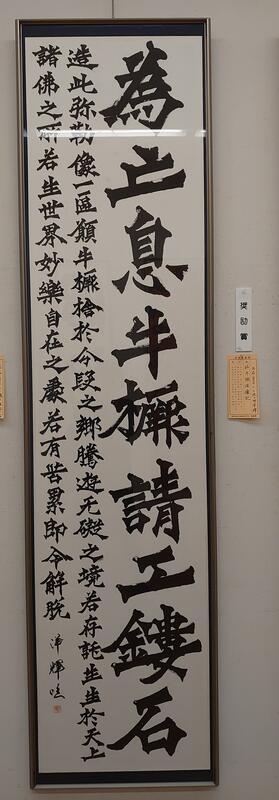 為亡息牛橛請工鏤石
造此弥勒像一區願牛橛捨於分段之鄉騰遊无礙之境若存託生生於天上
諸佛之所若生世界妙樂自在之處若有苦累即令解脱
奨励賞